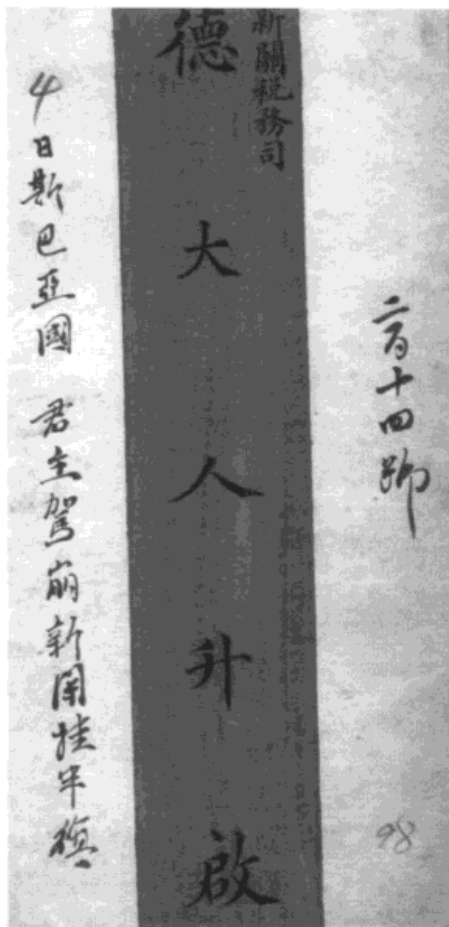 二百十四號
98
新關稅務司
德大人升啟
日斯巴亞國 君主駕崩新関挂半旗